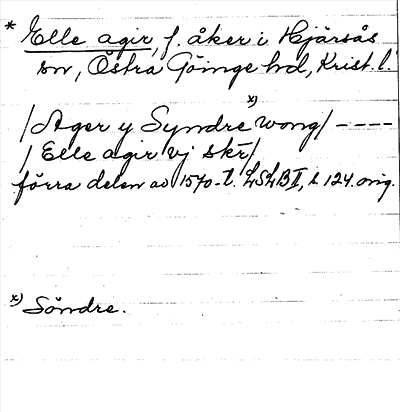 * Elle agir, f. åker i Hjärsås
sn, Östra Göinge hd, Krist. l.
/Ager y Syndre x) wong/ ----
/Elle agir vj skr/
förra delen av 1570-t. LSLB I, s 124. orig.
x) Söndre.